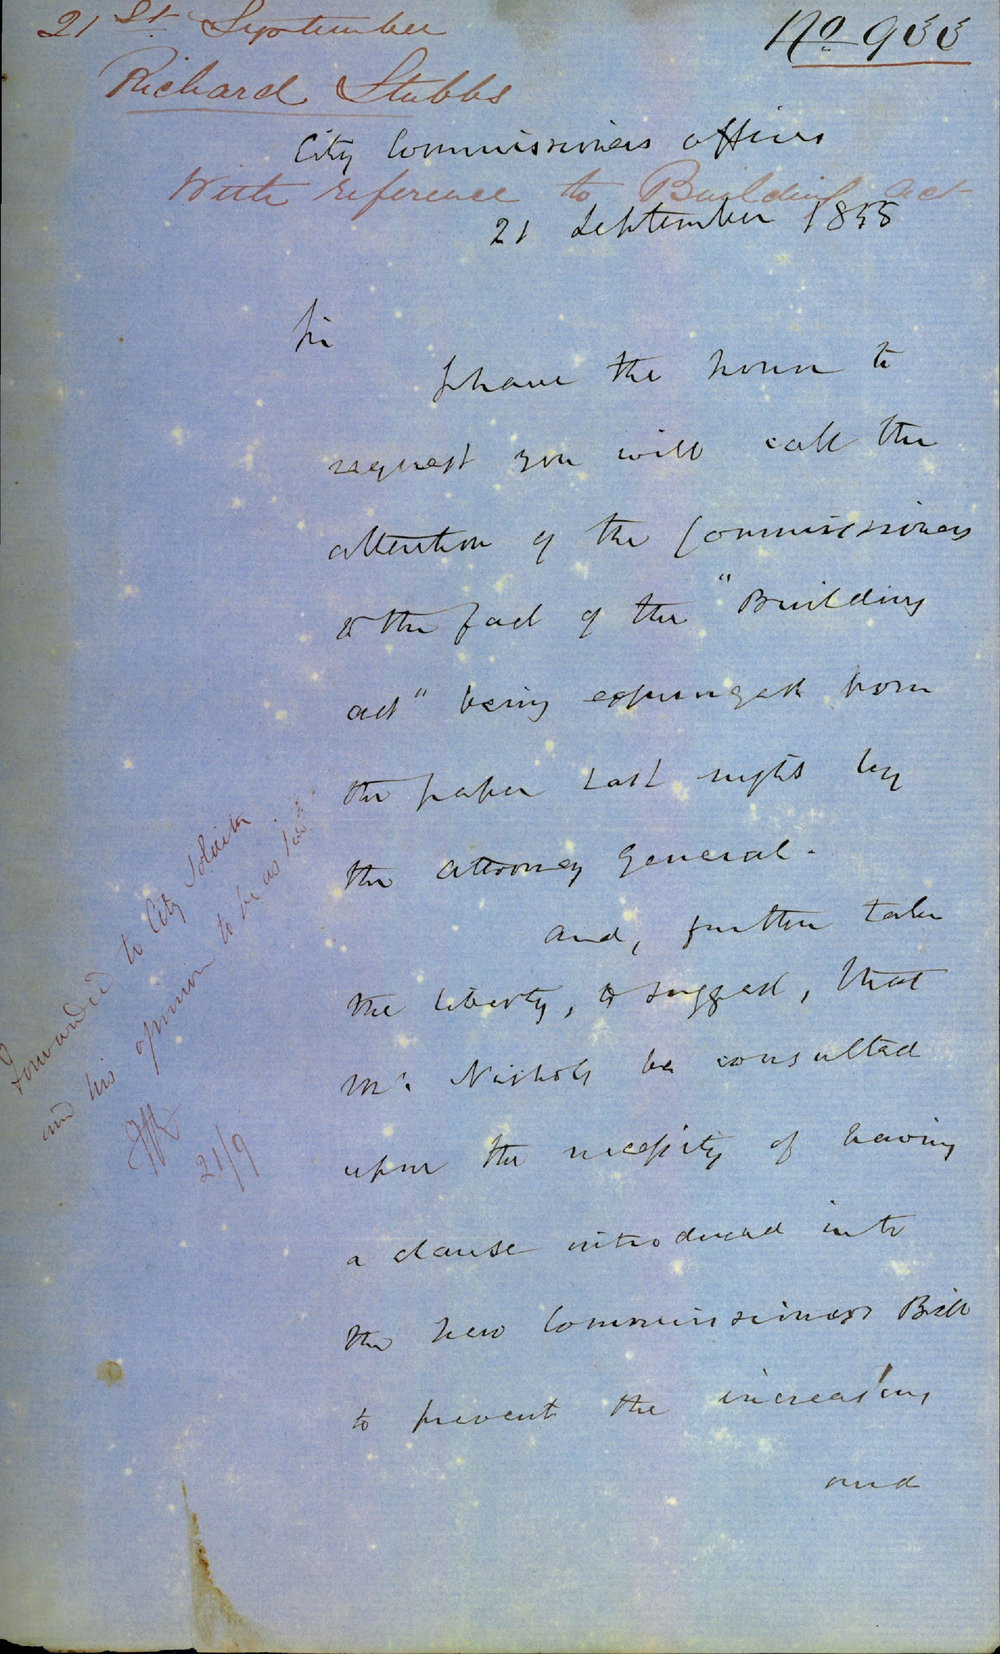 21st September
No 933
Richard Stubbs
City Commissioners offices
With reference to Building Act
21 September 1855
Sir
I have the honor to
request you will call the
attention of the Commissioners
to the fact of the "Building
act" being expunged from
the paper last night by
the Attorney General.
And, further take
the liberty, to suggest, that
Mr. Nichols be consulted
upon the necessity of having
a clause introduced into
the new Commissioners Bill
to prevent the increasing
and
Forwarded to City Solicitor
and his opinion to be
21/9